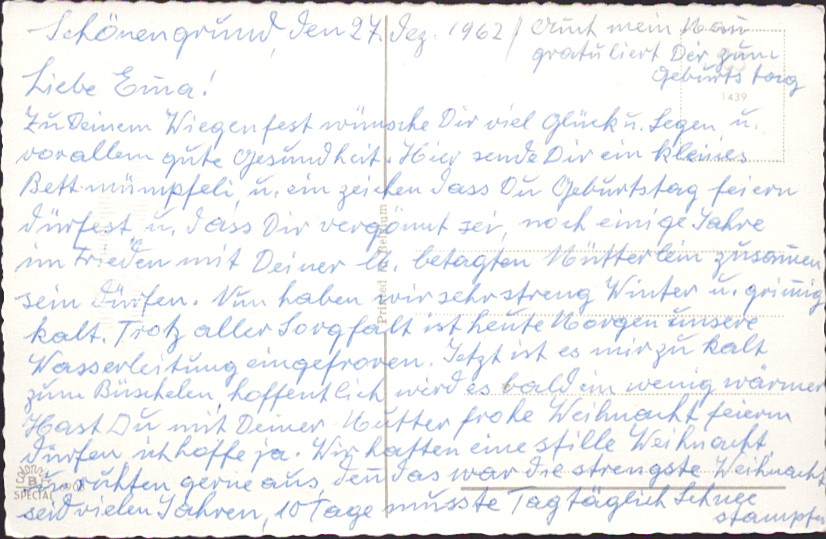 Schönengrund, den 27. Dez. 1962 / Auch mein Man
gratuliert Dir zum
Geburtstag
1439
Liebe Emma!
Zu Deinem Wiegenfest wünsche Dir viel Glück u. Segen, u.
vorallem gute Gesundheit. Hier sende Dir ein kleines
Bett-mümpfeli, u. ein zeichen dass Du Geburtstag feiern
dürfest u. dass Dir vergönnt sei, noch einige Jahre
im Frieden mit Deiner lb. betagten Mütterlein zusamen
sein dürfen. Nun haben wir sehr streng Winter u. grimig
kalt. Trotz aller Sorgfalt ist heute Morgen unsere
Wasserleitung eingefroren. Jetzt ist es mir zu kalt
zum Büschelen, hoffentlich wird es bald ein wenig wärmer
Hast Du mit Deiner Mutter frohe Weihnacht feiern
dürfen, ich hoffe ja. Wir hatten eine stille Weihnacht,
ruhten gerne aus, den das war die strengste Weihnacht
seid vielen Jahren, 10 Tage musste Tagtäglich Schnee
stampfen
Printed in Belgium
SPECIAL